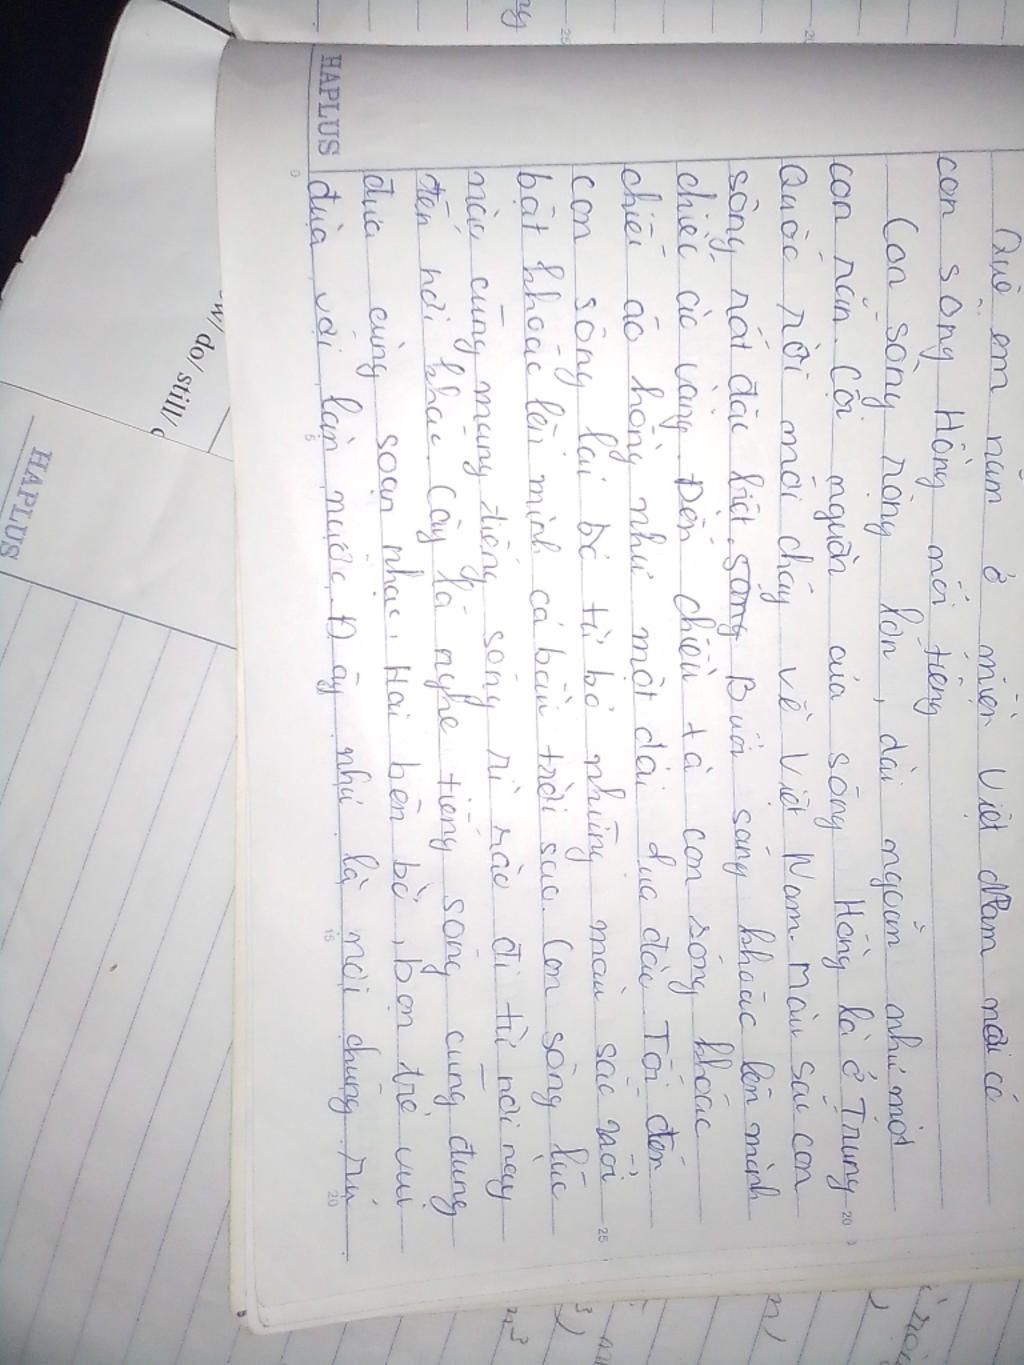 Quê em nằm ở miền Việt Nam nơi có
con sông Hồng nổi tiếng
Con sông rộng lớn, dài ngoằn như một
con rắn. Cội nguồn của sông Hồng là ở Trung
Quốc rồi mới chảy về Việt Nam. Màu sắc con
sông rất đặc biệt. Buổi sáng khoác lên mình
chiếc áo vàng. Đến chiều tà con sông khoác
chiếc áo hồng như một dải lụa đào. Tối đến
con sông lại bỏ từ bỏ những màu sắc rồi
bật khoác lên mình cả bầu trời sao. Con sông lúc
nào cũng mang tiếng sóng rì rào đi từ nơi này
đến nơi khác. Cây lá nghe tiếng sóng cũng đung
đưa cùng soạn nhạc. Hai bên bờ, bọn trẻ vui
đùa với làn nước. Đây như là nơi chúng
HAPLUS
HAPLUS
w/do/still/